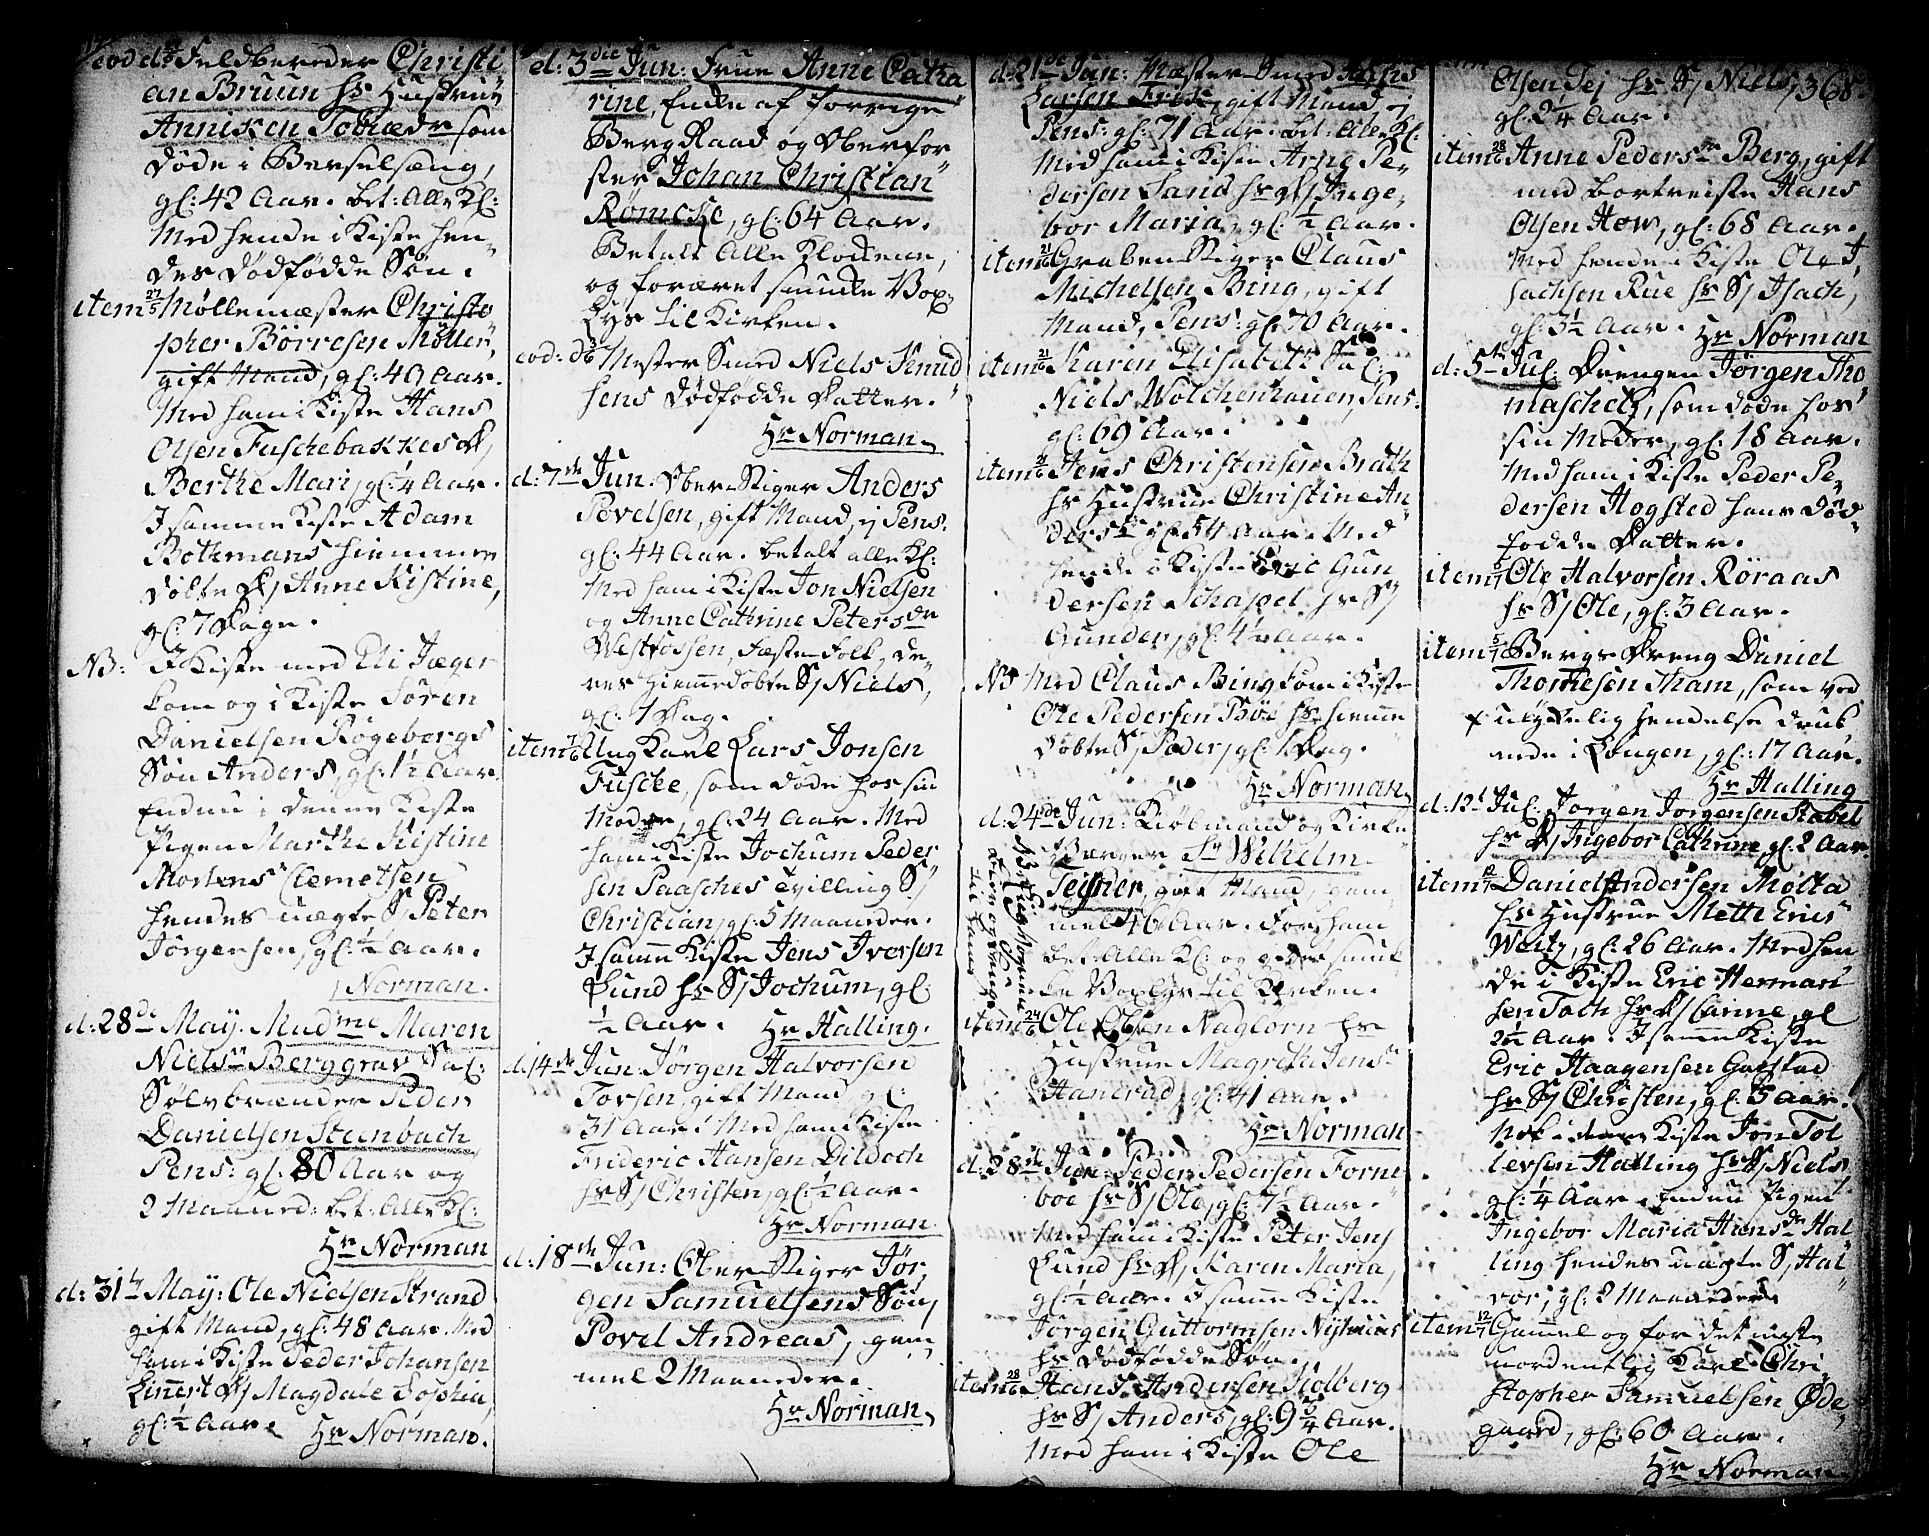 eod d: Feldbereder Christi
an Bruun hs Hustrue
Anniken Tobiædr som
døde i Barselsæng,
gl: 42 Aar. bet: Alle Kl:
Med hende i Kiste hen„
des dødfødde Søn.
item 27/5 Møllemæster Christo
pher Børresen Møller,
gift Mand, gl: 40 Aar.
Med ham i Kiste Hans
Olsen Fuschebakkes D/
Berthe Mari, gl: 1/4 Aar.
I samme Kiste Adam
Bothmans hiemme
døbte D/ Anne Kistine,
gl: 7 Dage.
NB: I Kiste med Eli Jæger
kom og i Kiste Søren
Danielsen Røgebergs
Søn Anders, gl: 1 1/2 Aar.
Endnu i denne Kiste
Pigen Marthe Kistine
Mortens Clemetsen
hendes uægte S/ Peter
Jørgensen, gl: 1/2 Aar.
Norman.
d: 28de May. Madme Maren
Nielsn Berggrav Sal:
Sølvbrænder Peder
Danielsen Steenbach
Pens: gl: 80 Aar og
2 Maaned: bet: Alle Kl:
Hr Norman
d: 31te May: Ole Nielsen Strand
gift Mand, gl: 48 Aar. Med
ham i Kiste Peder Johansen
Linnert D/ Magdale Sophia,
gl: 1/2 Aar. Hr Norman.
d: 3die Jun: Frue Anne Catha
rine, Enke af forrige
Berg Raad og Oberfor
ster Johan Christian
Römcke, gl: 64 Aar.
Betalt Alle Klokkene,
og foræret smukke Vox„
Lys til Kirken.
eod: d 3/6 Mester Smed Niels Knud
sens dødfødde Datter.
Hr Norman.
d: 7de Jun: Ober Stiger Anders
Povelsen, gift Mand, ej Pens.
gl: 44 Aar. betalt alle Kl:
Med ham i Kiste Jon Nielsen
og Anne Cathrine Petersdr
Westfossen, Fæste Folk, de„
res hiemedøbte S/ Niels,
gl: 1 Dag.
item 7/6 Ung Karl Lars Jonsen
Fuscke, som døde hos sin
Moder, gl: 24 Aar. Med
ham i Kiste Jochum Peder
sen Paasches tvilling S/
Christian, gl: 5 Maaneder.
I samme Kiste Jens Iversen
Lund hs S/ Jochum, gl:
1/2 Aar. Hr Halling.
d. 14de Jun: Jørgen Halvorsen
Torsen, gift Mand gl:
31 Aar. Med ham i Kiste
Frideric Hansen Dildoch
hs S/ Christen, gl: 1/2 Aar.
Hr Norman
d: 18de Jun: Ober Stiger Jør„
gen Samuelsens Søn,
Povel Andreas, gam„
mel 2 Maaneder.
Hr Norman,
d: 21de Jun: Mæster Smed
Larsen gift Mand, ej
Pens: gl: 71 Aar. bet: Alle Kl:
Med ham i Kiste Arne Pe„
dersen Sand hs D/ Inge„
bor Maria, gl: 1/2 Aar.
item 21/6 Gruben Stiger Claus
Michelsen Bing, gift
Mand, Pens: gl: 70 Aar.
item 21/6 Karen Elisabeth Sal:
Niels Wolchenhauer, Pens:
gl: 69 Aar.
item 21/6 Jens Christensen Brath
hs Hustrue Christine An„
dersdr gl: 54 Aar. Med
hende i Kiste Eric Gun
dersen Schapel hs S/
Gunder, gl: 4 1/2 Aar.
NB Med Claus Bing kom i Kiste
Ole Pedersen Böe hs hieme
døbte S/ Peder, gl: 1 Dag.
Hr Norman,
d. 24de Jun: Kiøbmand og Kirke
Værger Sr Wilhelm
Teisner, gift Mand, gam
mel 46 Aar. For ham
bet: Alle Kl: og gives smuk
ke Voxlys til Kirken.
item 24/6 Ole Olsen Nagløen hs
Hustrue Magrethe Jensdr
Haneraad, gl: 41 Aar.
Hr Norman
d: 28de Jun: Peder Pedersen Forne
boe hs S/ Ole, gl: 7 1/2 Aar.
Med ham i Kiste Peter Jens
Lund hs D/ Karen Maria,
gl: 1/2 Aar. I samme Kiste
Jørgen Guttormsen Nyhuus
hs dødfødde Søn.
item 28/6 Hans Andersen Kolberg
hs S/ Anders, gl: 9 3/4 Aar.
Med ham i Kiste Ole
Olsen Tej hs S/ Niels, 368.
gl: 2 1/4 Aar.
item 28/6 Anne Pedersdr Berg, gift
med bortreiste Hans
Olsen How, gl: 68 Aar.
Med hende i Kiste Ole I„
sachsen Rue hs S/ Isach,
gl: 3 1/2 Aar. Hr Norman
d: 5te Jul: Drengen Jørgen Tho
maschels, som døde hos
sin Moder, gl: 18 Aar.
Med ham i Kiste Peder Pe„
dersen Hogsted hans død„
fødde Datter.
item 5/7 Ole Halvorsen Røraas
hs S/ Ole, gl: 3 Aar.
item 5/7 Bergs Dreng Daniel
Thomesen Tham, som ved
ulykkelig Hendelse druk
nede i Laagen, gl: 17 Aar.
Hr Halling
d: 12te Jul: Jørgen Jørgensen Stabel
hs D/ Ingebor Cathrine gl. 2 Aar.
item 12/7 Daniel Andersen Molta
hs Hustrue Mette Erics
Weitz, gl: 26 Aar. Med hen
de i Kiste Eric Herman
sen Toth hs D/ Canne, gl
2 1/2 Aar. I samme Kiste
Eric Haagensen Gaestad
hs S/ Christen, gl: 5 Aar.
Nok i denne Kiste Jon Tol
levsen Halling hs S/ Niels
gl: 1/4 Aar. Endnu Pigen
Ingebor Maria Hansdr Hal„
ling hendes uægte S/ Hal„
vor, gl: 2 Maaneder.
item 12/7 Gammel og for det meste
uordentlig Karl Chri
stopher Samuelsen Øde„
gaard, gl: 60 Aar.
Hr Norman.